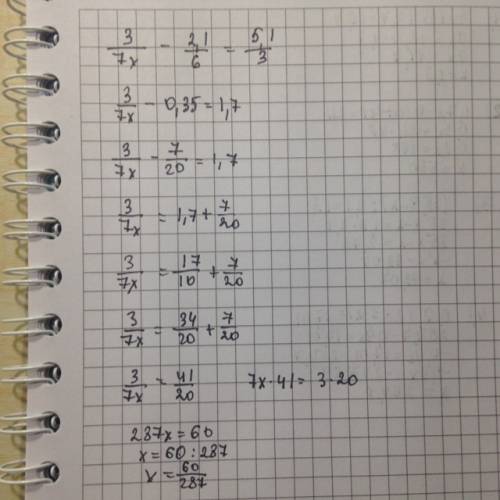 3/7x - 2,1/6 = 5,1/3
3/7x - 0,35 = 1,7
3/7x - 7/20 = 1,7
3/7x = 1,7 + 7/20
3/7x = 17/10 + 7/20
3/7x = 34/20 + 7/20
3/7x = 41/20 7x·41 = 3·20
287x = 60
x = 60 : 287
x = 60/287